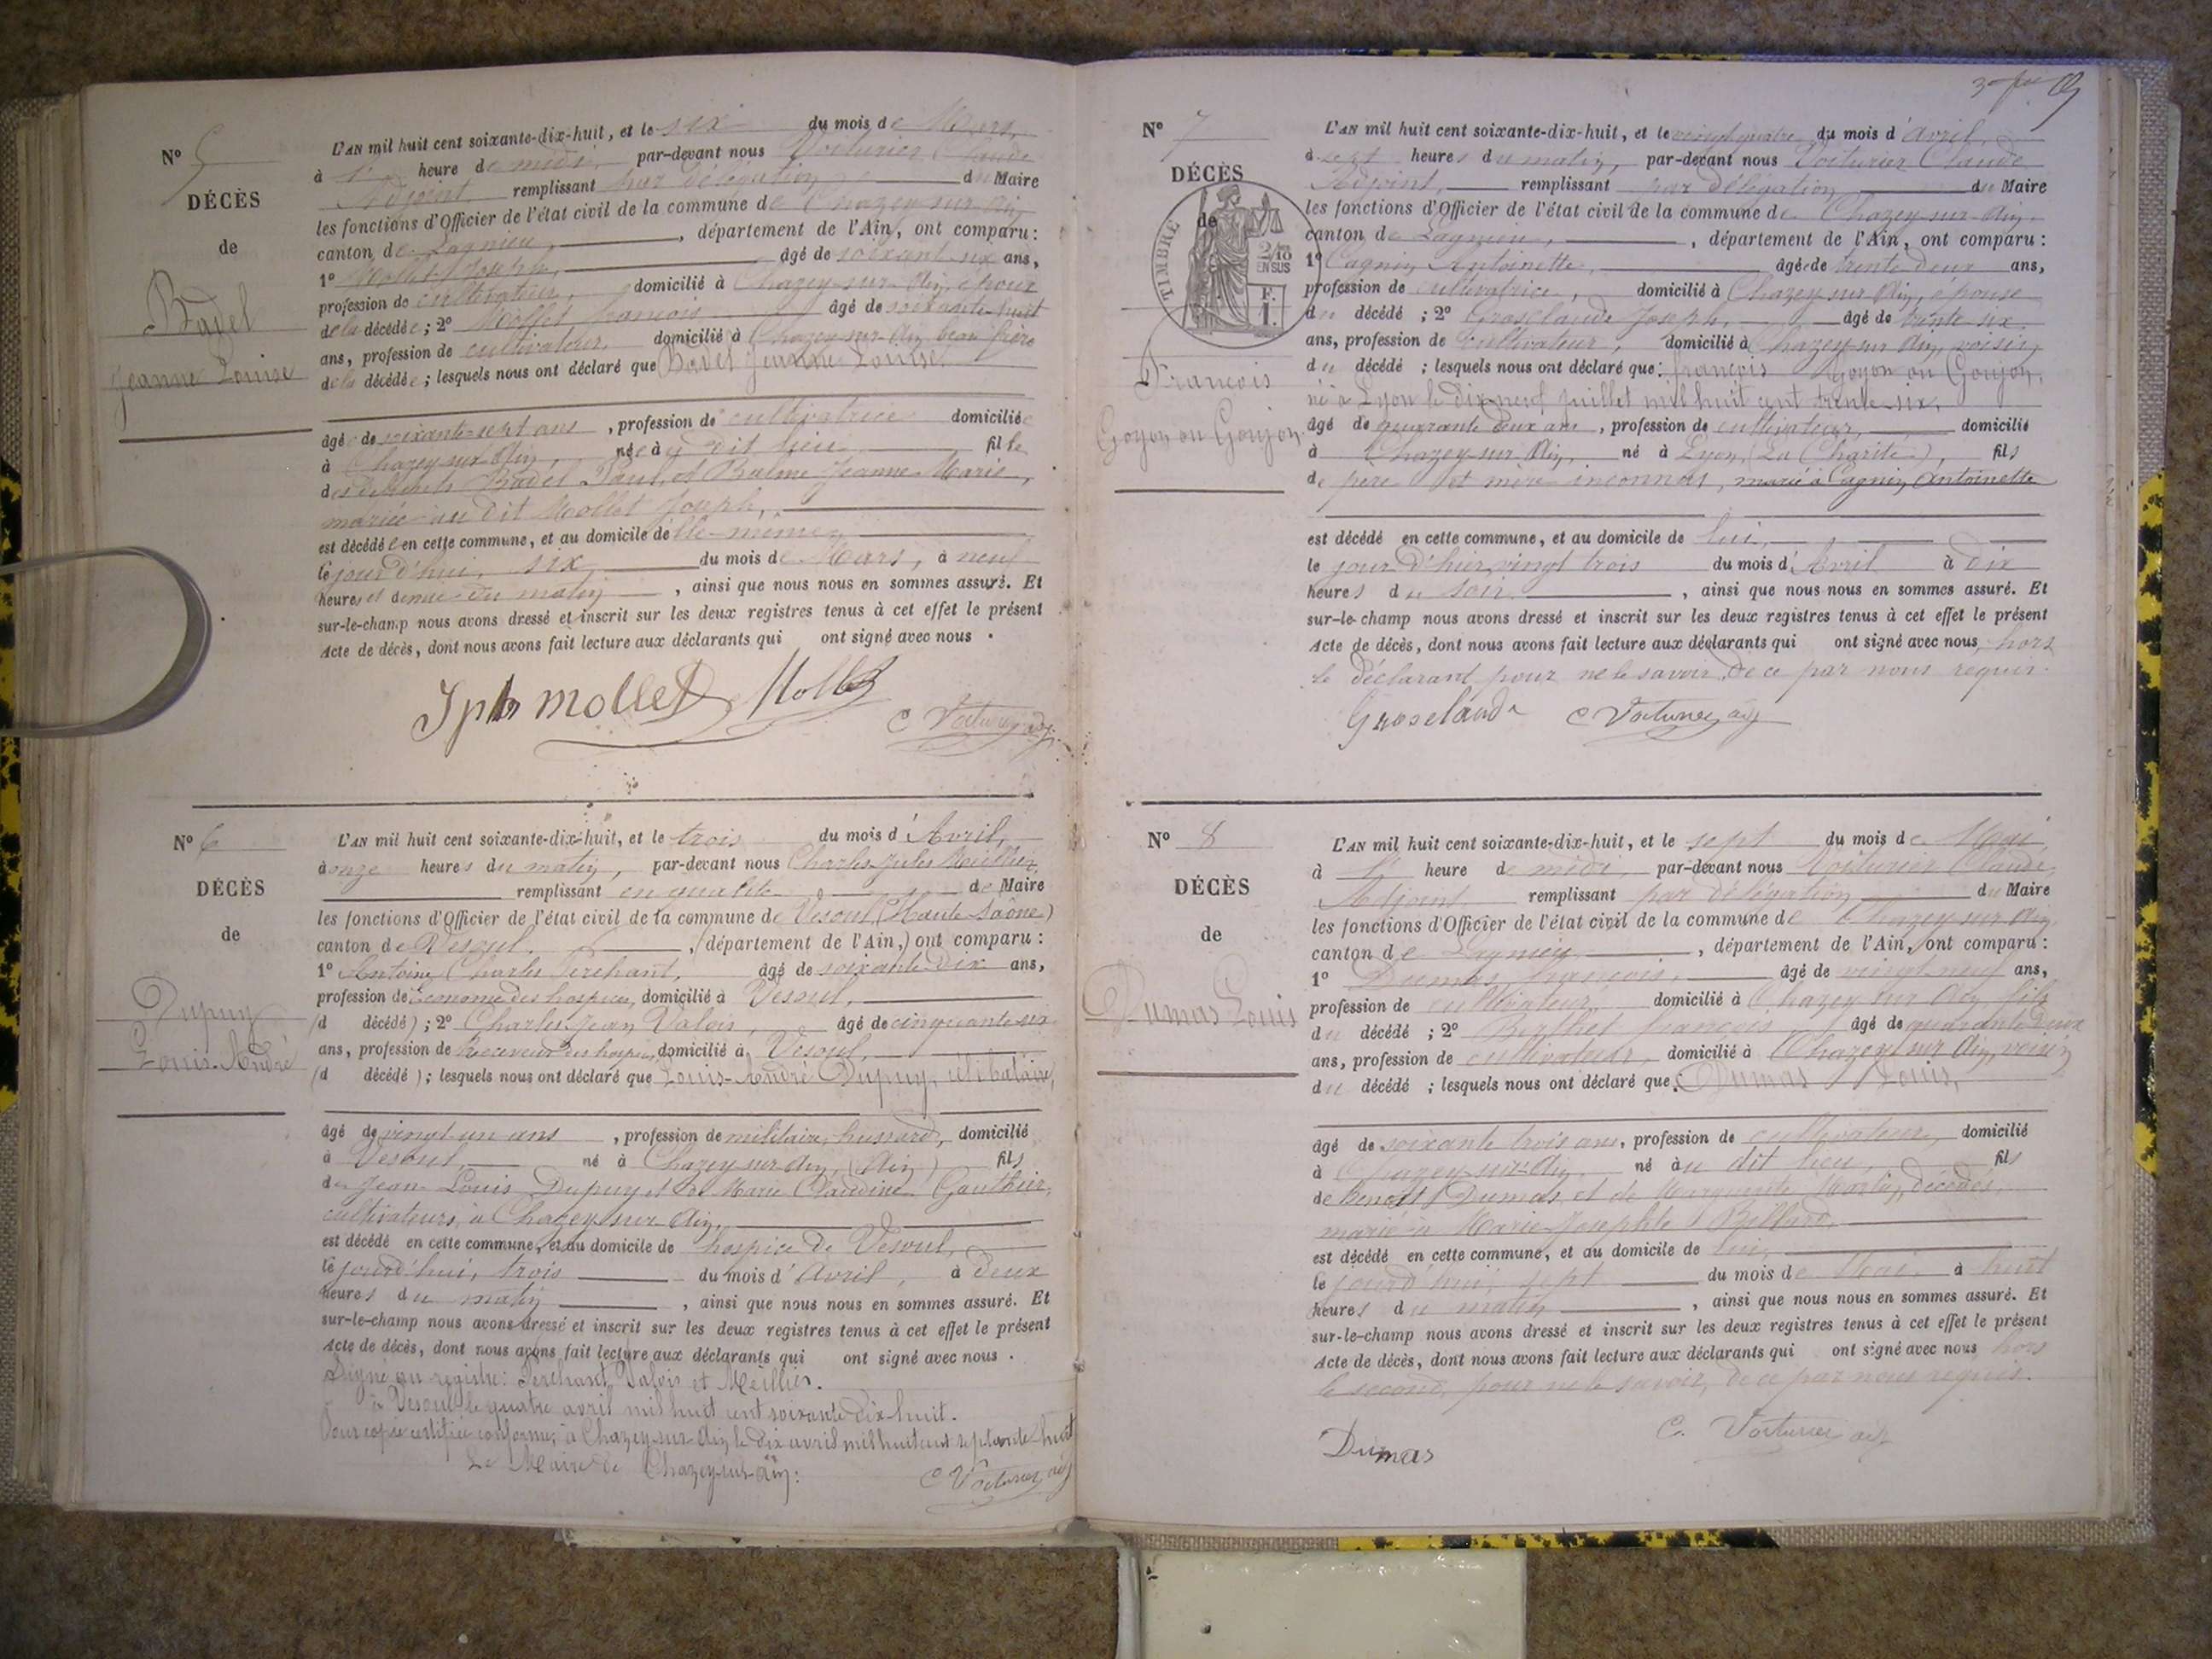 Nº 5
DÉCÈS
de
Badel
Jeanne Louise
L'AN mil huit cent soixante-dix-huit, et le six du mois de Mars,
à 1' heure de midi, par-devant nous Voiturier Claude
Adjoint remplissant par délégation du Maire
les fonctions d'Officier de l'état civil de la commune de Chazey-sur-Ain
canton de Lagnieu, département de l'Ain, ont comparu :
1º Mollet Joseph, âgé de soixante-six ans,
profession de cultivateur, domicilié à Chazey-sur-Ain, époux
de la décédée ; 2º Mollet françois âgé de soixante-huit
ans, profession de cultivateur, domicilié à Chazey-sur-Ain, beau frère
de la décédée ; lesquels nous ont déclaré que Badel Jeanne Louise
âgée de soixante-sept ans, profession de cultivatrice domiciliée
à Chazey-sur-Ain, née à dit lieu fille
des défunts Badel Paul et Balme Jeanne-Marie,
mariée au dit Mollet Joseph,
est décédée en cette commune, et au domicile de elle-même,
le jour d'hui, six du mois de Mars, à neuf
heures et demie du matin, ainsi que nous nous en sommes assuré. Et
sur-le-champ nous avons dressé et inscrit sur les deux registres tenus à cet effet le présent
Acte de décès, dont nous avons fait lecture aux déclarants qui ont signé avec nous.
Jph mollet Mollet
C Voiturier adj
Nº 6
DÉCÈS
de
Dupuy
Louis-André
L'AN mil huit cent soixante-dix-huit, et le trois du mois d'Avril,
à onze heures du matin, par-devant nous Charles-Jules Meillier,
remplissant en qualité de Maire
les fonctions d'Officier de l'état civil de la commune de Vesoul (Haute-Saône)
canton de Vesoul, (département de l'Ain,) ont comparu :
1º Antoine Charles Perchant, âgé de soixante-dix ans,
profession de Econome des hospices, domicilié à Vesoul,
(d décédé) ; 2º Charles-Jean Valois, âgé de cinquante-six
ans, profession de Receveur des hospices, domicilié à Vesoul,
(d décédé) ; lesquels nous ont déclaré que Louis-André Dupuy, célibataire,
âgé de vingt-un ans, profession de militaire, hussard, domicilié
à Vesoul, né à Chazey-sur-Ain, (Ain) fils
de Jean-Louis Dupuy et de Marie Claudine Gauthier,
cultivateurs, à Chazey-sur-Ain,
est décédé en cette commune, et au domicile de hospice de Vesoul,
le jourd'hui, trois du mois d'Avril, à deux
heures du matin, ainsi que nous nous en sommes assuré. Et
sur-le-champ nous avons dressé et inscrit sur les deux registres tenus à cet effet le présent
Acte de décès, dont nous avons fait lecture aux déclarants qui ont signé avec nous.
Signé au registre: Perchant, Valois et Meillier.
à Vesoul le quatre avril mil huit cent soixante-dix-huit.
Pour copie certifiée conforme, à Chazey-sur-Ain, le dix avril mil huit cent septante huit
Le Maire de Chazey-sur-Ain:
C Voiturier adj
Nº 7
DÉCÈS
de
TIMBRE
2/10
EN SUS
1 F.
François
Goyon ou Goujon
L'AN mil huit cent soixante-dix-huit, et le vingt quatre du mois d'avril,
à sept heures du matin, par-devant nous Voiturier Claude
Adjoint, remplissant par délégation du Maire
les fonctions d'Officier de l'état civil de la commune de Chazey-sur-Ain,
canton de Lagnieu, département de l'Ain, ont comparu :
1º Cagnin Antoinette, âgé de trente-deux ans,
profession de cultivatrice, domicilié à Chazey-sur-Ain, épouse
du décédé ; 2º Grosclaude Joseph, âgé de trente-six
ans, profession de cultivateur, domicilié à Chazey-sur-Ain, voisin
du décédé ; lesquels nous ont déclaré que: françois Goyon ou Goujon,
né à Lyon le dix-neuf juillet mil huit cent trente-six,
âgé de quarante deux ans, profession de cultivateur, domicilié
à Chazey-sur-Ain, né à Lyon, (La Charité), fils
de père et mère inconnus, marié à Cagnin Antoinette
est décédé en cette commune, et au domicile de lui,
le jour d'hier vingt trois du mois d'Avril à dix
heures du soir, ainsi que nous nous en sommes assuré. Et
sur-le-champ nous avons dressé et inscrit sur les deux registres tenus à cet effet le présent
Acte de décès, dont nous avons fait lecture aux déclarants qui ont signé avec nous, hors
le déclarant pour ne le savoir, de ce par nous requis.
Grosclaude C Voiturier adj
Nº 8
DÉCÈS
de
Dumas Louis
L'AN mil huit cent soixante-dix-huit, et le sept du mois de Mai,
à 1' heure de midi, par-devant nous Voiturier Claude,
Adjoint remplissant par délégation du Maire
les fonctions d'Officier de l'état civil de la commune de Chazey-sur-Ain
canton de Lagnieu, département de l'Ain, ont comparu :
1º Dumas françois, âgé de vingt-neuf ans,
profession de cultivateur, domicilié à Chazey-sur-Ain, fils
du décédé ; 2º Berthet françois âgé de quarante-deux
ans, profession de cultivateur, domicilié à Chazey-sur-Ain, voisin
du décédé ; lesquels nous ont déclaré que Dumas Louis,
âgé de soixante trois ans, profession de cultivateur, domicilié
à Chazey-sur-Ain, né au dit lieu, fils
de Benoît Dumas et de Marguerite Martin, décédés,
marié à Marie-Josephte
est décédé en cette commune, et au domicile de lui,
le jourd'hui, sept du mois de Mai, à huit
heures du matin, ainsi que nous nous en sommes assuré. Et
sur-le-champ nous avons dressé et inscrit sur les deux registres tenus à cet effet le présent
Acte de décès, dont nous avons fait lecture aux déclarants qui ont signé avec nous hors
le second, pour ne le savoir, de ce par nous requis.
Dumas C. Voiturier adj